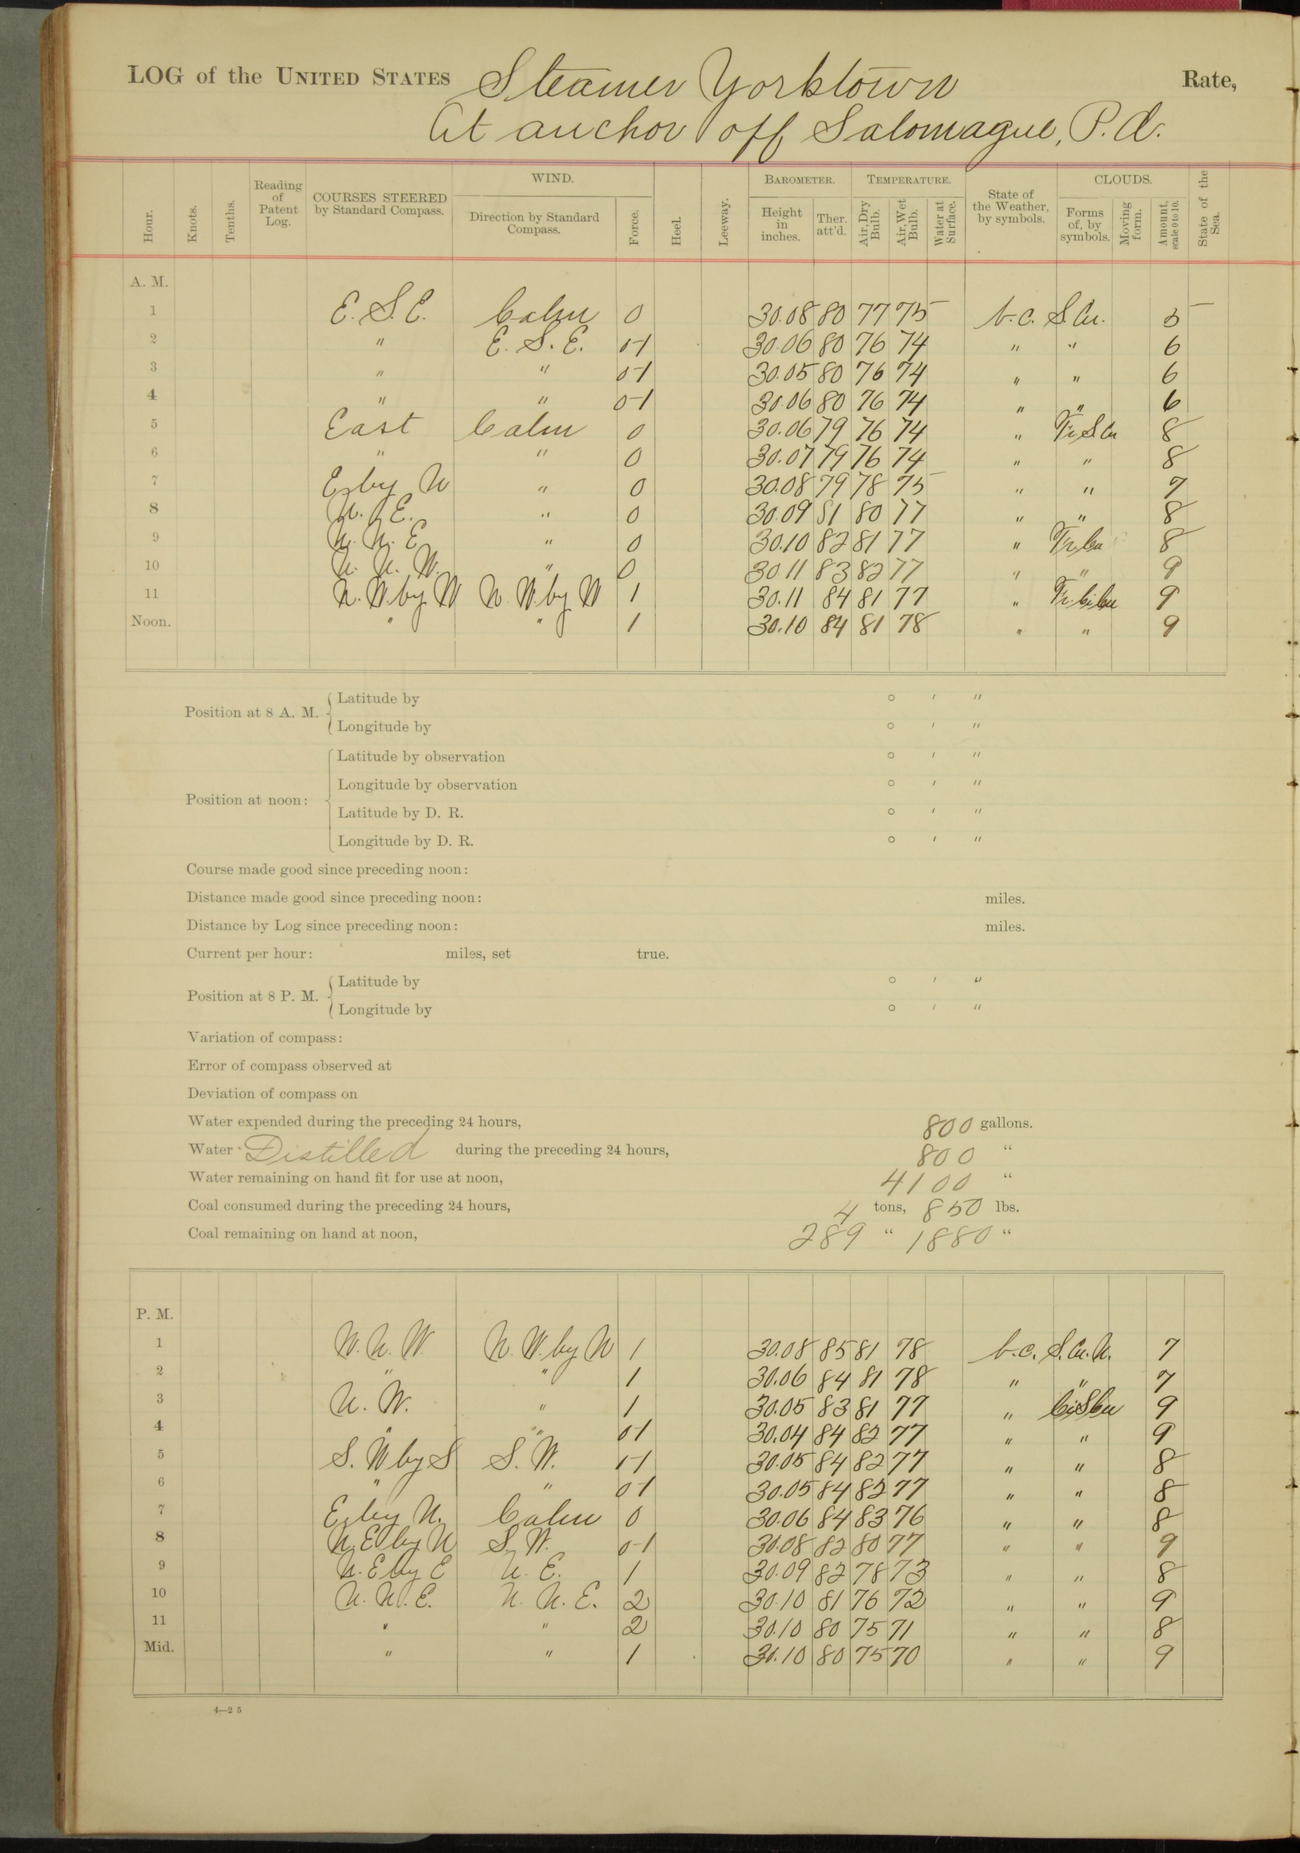 LOG of the UNITED STATES Steamer Yorktown Rate,
At anchor off Salomague, P.I.
Hour. Knots. Tenths. Reading of Patent Log. COURSES STEERED by Standard Compass. WIND. Direction by Standard Compass. Force. Heel. Leeway. BAROMETER. Height in inches. Ther. att'd. TEMPERATURE. Air, Dry Bulb. Air, Wet Bulb. Water at Surface. State of the Weather, by symbols. CLOUDS. Forms of, by symbols. Moving form. Amount, scale 0 to 10. State of the Sea.
A. M.
1 E. S. E. Calm 0 30.08 80 77 75 b.c. S.Cu. 5
2 " E. S. E. 0-1 30.06 80 76 74 " " 6
3 " " 0-1 30.05 80 76 74 " " 6
4 " " 0-1 30.06 80 76 74 " " 6
5 East Calm 0 30.06 79 76 74 " Fr.S.Cu 8
6 " " 0 30.07 79 76 74 " " 8
7 E. by N " 0 30.08 79 78 75 " " 7
8 N. E. " 0 30.09 81 80 77 " " 8
9 N. N. E " 0 30.10 82 81 77 " Fr.Cu 8
10 N. N. W. " 0 30 11 83 82 77 " " 9
11 N. W by W N. W by W 1 30.11 84 81 77 " Fr.Ci.Cu 9
Noon. " " 1 30.10 84 81 78 " " 9
Position at 8 A. M. Latitude by ° ' "
Longitude by ° ' "
Position at noon: Latitude by observation ° ' "
Longitude by observation ° ' "
Latitude by D. R. ° ' "
Longitude by D. R. ° ' "
Course made good since preceding noon:
Distance made good since preceding noon: miles.
Distance by Log since preceding noon: miles.
Current per hour: miles, set true.
Position at 8 P. M. Latitude by ° ' "
Longitude by ° ' "
Variation of compass:
Error of compass observed at
Deviation of compass on
Water expended during the preceding 24 hours, 800 gallons.
Water Distilled during the preceding 24 hours, 800 "
Water remaining on hand fit for use at noon, 4100 "
Coal consumed during the preceding 24 hours, 4 tons, 850 lbs.
Coal remaining on hand at noon, 289 " 1880 "
P. M.
1 W. N. W. N. W. by N 1 30.08 85 81 78 b.c. S.Cu.N. 7
2 " " 1 30.06 84 81 78 " " 7
3 N. W. " 1 30.05 83 81 77 " Ci.S.Cu 9
4 " " 0-1 30.04 84 82 77 " " 9
5 S. W by S S. W. 1-1 30.05 84 82 77 " " 8
6 " " 0-1 30.05 84 82 77 " " 8
7 E. by N. Calm 0 30.06 84 83 76 " " 8
8 N. E by N S. W. 0-1 30.08 82 80 77 " " 9
9 N. E by E N. E. 1 30.09 82 78 73 " " 8
10 N. N. E. N. N. E. 2 30.10 81 76 72 " " 9
11 " " 2 30.10 80 75 71 " " 8
Mid. " " 1 30.10 80 75 70 " " 9
4—25